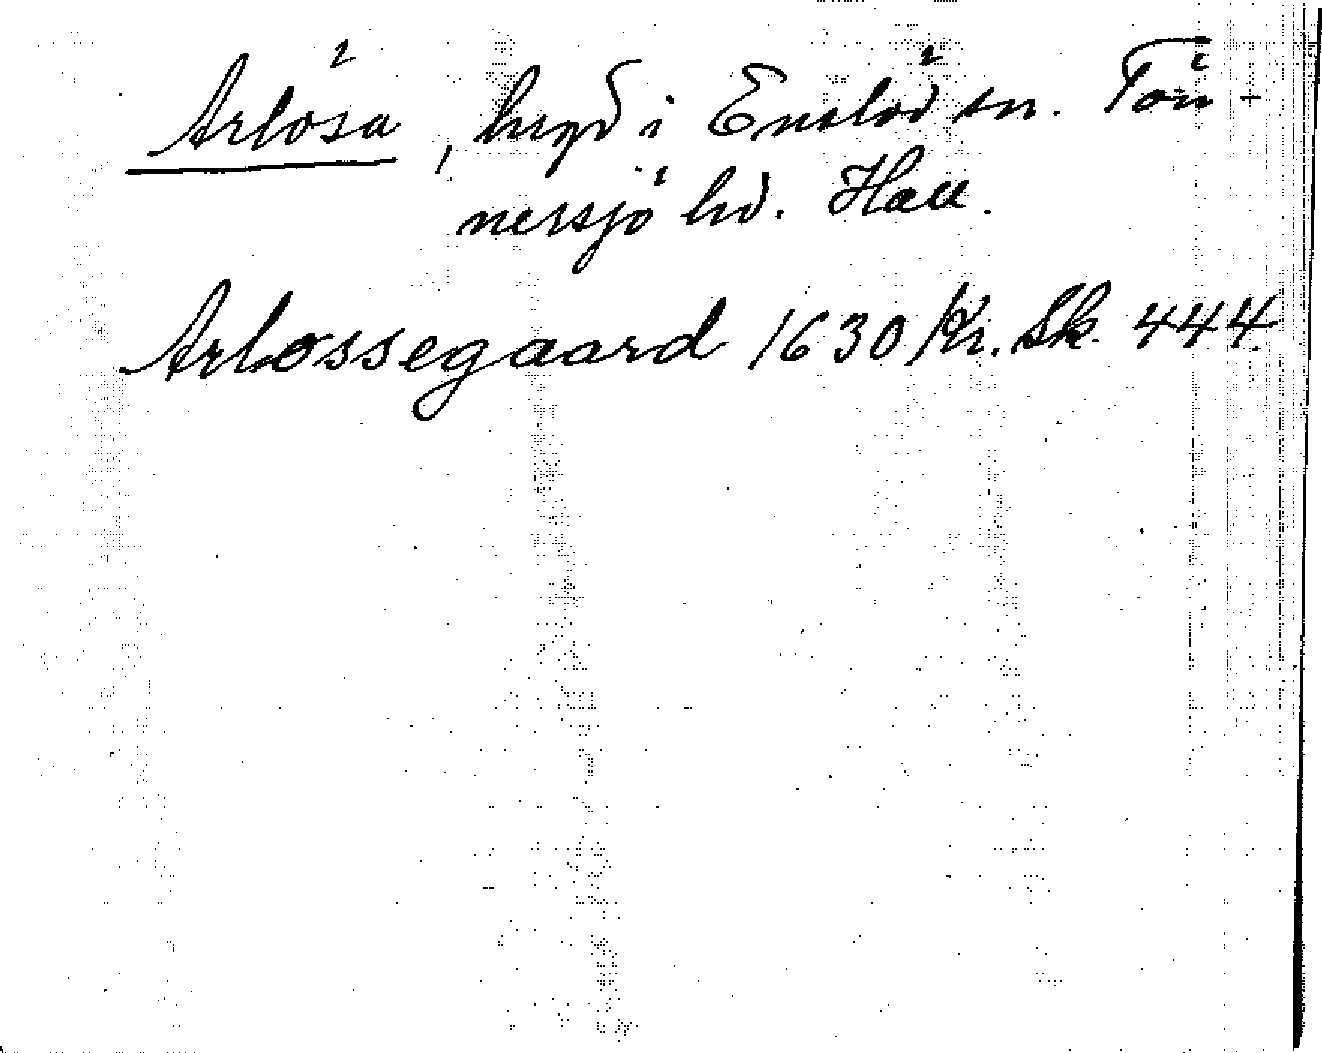 Arlösa, hmd i Enslöv sn. Tön-
nersjö hd. Hall.
Arløssegaard 1630 Kr. Sk. 444